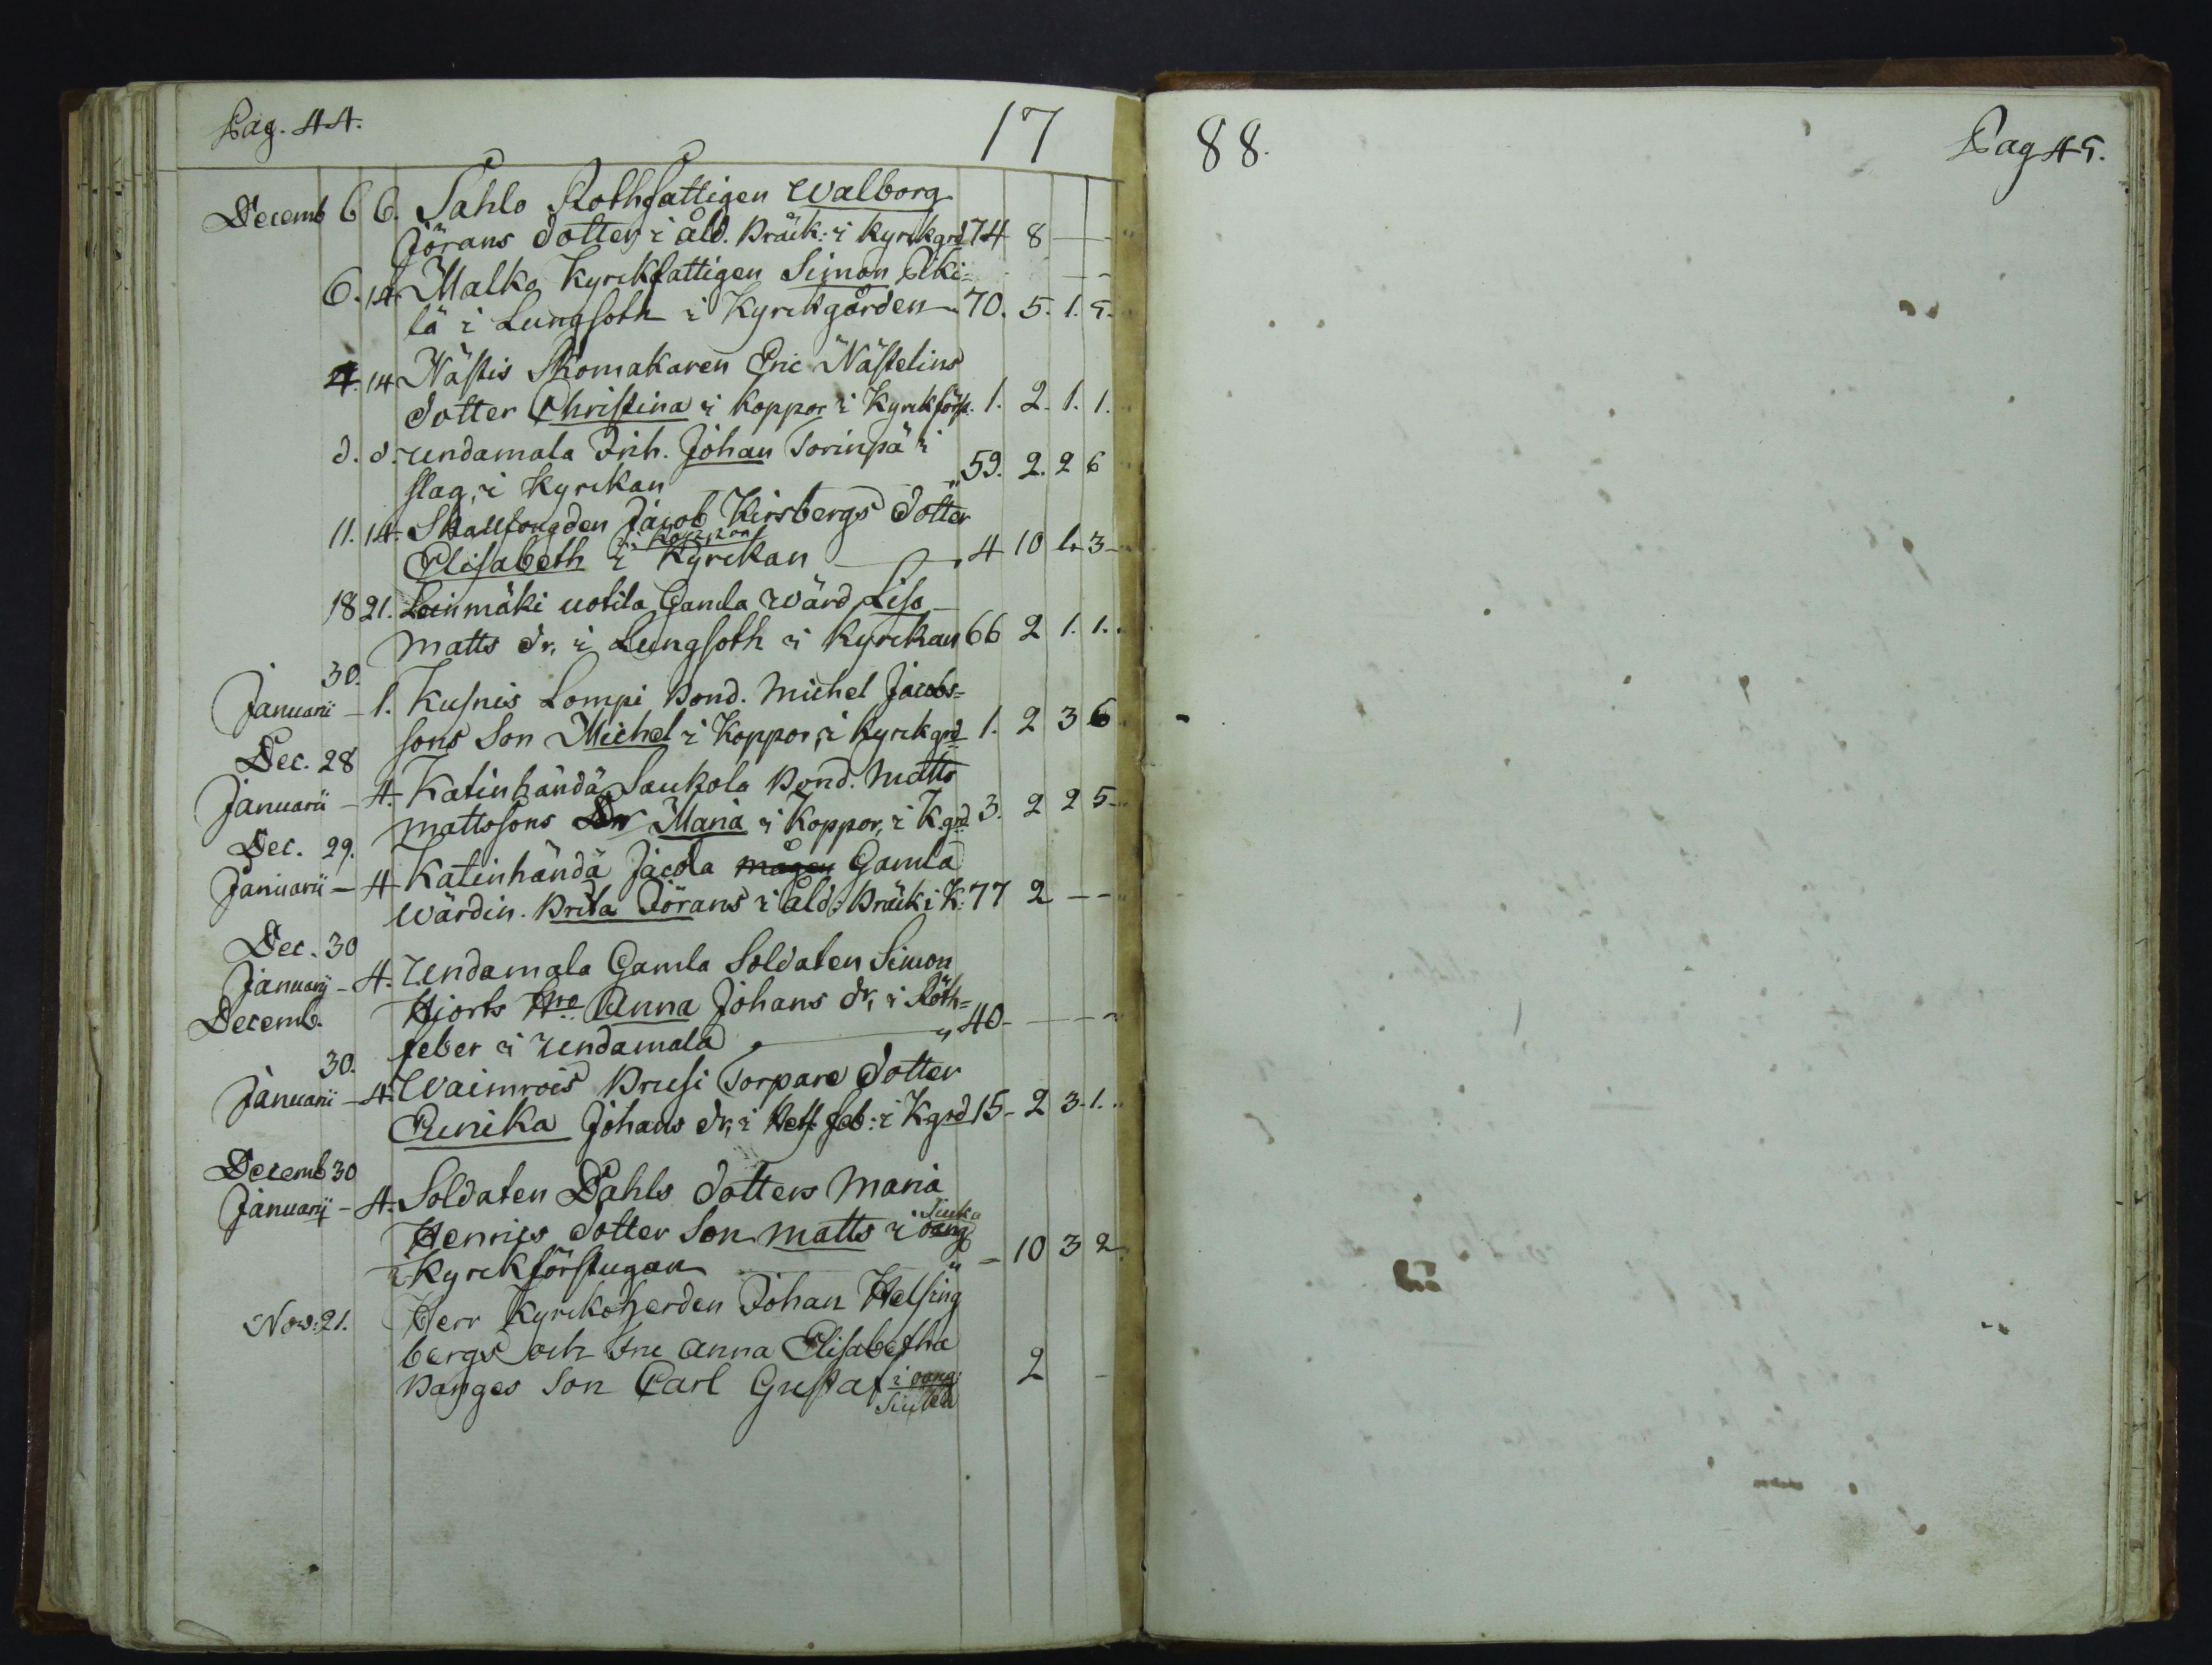 Pag. 44.
17
Decemb 6 6. Sahlo Rothfattigen Walborg
Jörans dotter i åld. Bräck: i Kyrckgrd 74 8 — -
6. 14 Malko Kyrckfattigen Simon Piki=
lä i Lungsoth i Kyrckgården 70. 5. 1. 5.
4. 14 Nästis Skomakaren Eric Nästelins
dotter Christina i koppor i Kyrckförs. 1. 2. 1. 1.
d. d. Undamala Inh. Johan Torinpä i
slag, i Kyrckan 59. 2. 2 6
11. 14. Skallfougden Jacob Kirsbergs dotter
i koppor
Elisabeth i Kyrckan 4 10 1. 3
18 21. Leinmäki uotila Gamla wärd Liso
Matts dr. i Lungsoth i Kyrckan 66 2 1. 1.
30.
Januarii - 1. Kusnis Lompi Bond. Michel Jacobs=
sons Son Michel i Koppor, i Kyrckgrd 1. 2 3 6
Dec. 28
Januarii - 4. Katinhändä Saukola Bond. Matts
Mattssons Dr Maria i Koppor, i K.grd. 3. 2 2 5
Dec. 29.
Januarii - 4 Katinhändä Jacola mågen Gamla
wärdin. Brita Jörans i åld. Bräk i K: 77 2 - -
Dec. 30
Januarij - 4. Undamala Gamla Soldaten Simon
Decemb. Hiorts Hro Anna Johans dr, i Röth=
feber i Undamala 40 - - -
30.
Januarii - 4. Waimrois Brusi Torpare dotter
Eunika Johans dr, i Het. feb: i Kgrd 15 - 2 3. 1.
Decemb 30
Januarij - 4. Soldaten Dahls dotters Maria
Siuka
Henrics dotter Son Matts i oang
i Kyrckförstugan - 10 3 2
Nov: 21. Herr Kyrckoherden Johan Helsing
bergs och Fru Anna Elisabetha
Banges Son Carl Gustaf i oang. 2 -
Siukd
88.
Pag 45.